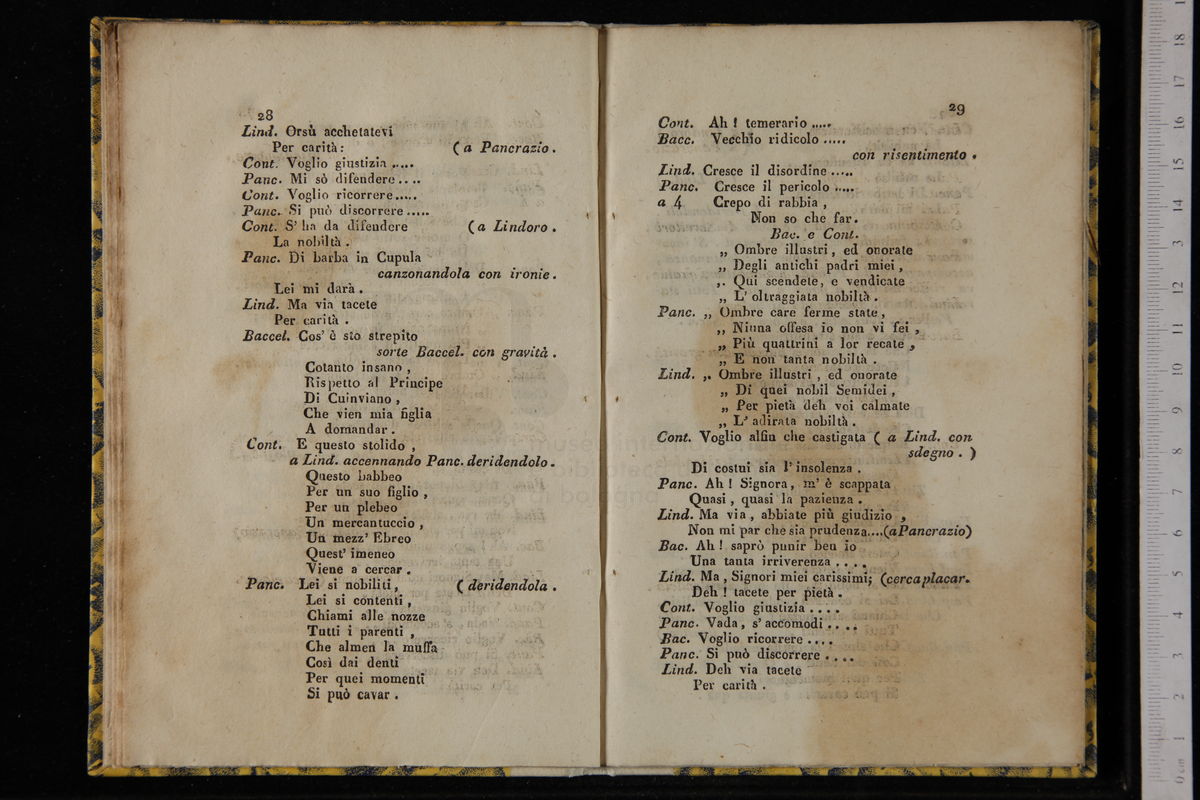 28
Lind. Orsù acchetatevi
Per carità: (a Pancrazio.
Cont. Voglio giustizia.....
Panc. Mi sò difendere....
Cont. Voglio ricorrere.....
Panc. Si può discorrere.....
Cont. S' ha da difendere (a Lindoro.
La nobiltà.
Panc. Di barba in Cupula
canzonandola con ironie.
Lei mi darà.
Lind. Ma via tacete
Per carità.
Baccel. Cos' è sto strepito
sorte Baccel. con gravità.
Cotanto insano,
Rispetto al Principe
Di Cuinviano,
Che vien mia figlia
A domandar.
Cont. E questo stolido,
a Lind. accennando Panc. deridendolo.
Questo babbeo
Per un suo figlio,
Per un plebeo
Un mercantuccio,
Un mezz' Ebreo
Quest' imeneo
Viene a cercar.
Panc. Lei si nobiliti, (deridendola.
Lei si contenti,
Chiami alle nozze
Tutti i parenti,
Che almen la muffa
Così dai denti
Per quei momenti
Si può cavar.
29
Cont. Ah! temerario.....
Bacc. Vecchio ridicolo.....
con risentimento.
Lind. Cresce il disordine.....
Panc. Cresce il pericolo.....
a 4 Crepo di rabbia,
Non so che far.
Bac. e Cont.
„ Ombre illustri, ed onorate
„ Degli antichi padri miei,
,. Qui scendete, e vendicate
„ L' oltraggiata nobiltà.
Panc. „ Ombre care ferme state,
,, Niuna offesa io non vi fei,
„ Più quattrini a lor recate,
„ E non tanta nobiltà.
Lind. ,. Ombre illustri, ed onorate
„ Di quei nobil Semidei,
„ Per pietà deh voi calmate
„ L' adirata nobiltà.
Cont. Voglio alfin che castigata ( a Lind. con
sdegno. )
Di costui sia l' insolenza.
Panc. Ah! Signora, m' è scappata
Quasi, quasi la pazienza.
Lind. Ma via, abbiate più giudizio,
Non mi par che sia prudenza....(a Pancrazio)
Bac. Ah! saprò punir ben io
Una tanta irriverenza....
Lind. Ma, Signori miei carissimi; (cerca placar.
Deh! tacete per pietà.
Cont. Voglio giustizia....
Panc. Vada, s' accomodi....
Bac. Voglio ricorrere....
Panc. Si può discorrere....
Lind. Deh via tacete
Per carità.